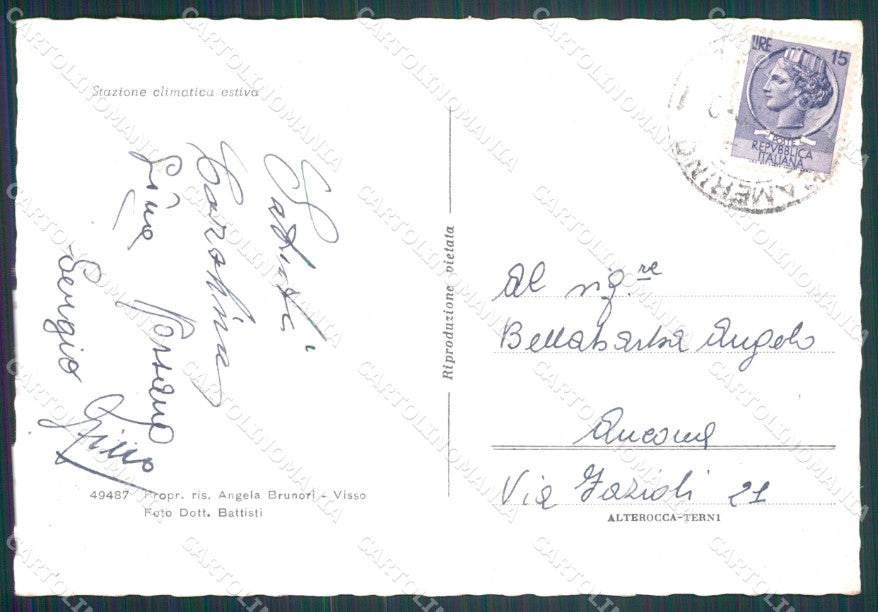 Stazione climatica estiva
Saluti
Carolina
Lina Rossano
Sergio
49487 Propr. ris. Angela Brunori - Visso
Foto Dott. Battisti
Riproduzione vietata
LIRE 15
POSTE
REPVBBLICA
ITALIANA
CAMERINO
Al sig.re
Bellabarba Angelo
Ancona
Via Fazioli 21
ALTEROCCA-TERNI
CARTOLINOMANIA